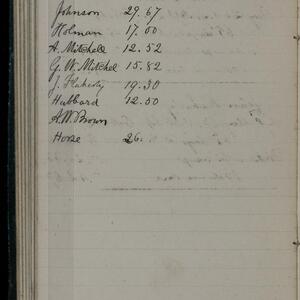 Johnson 29.67
Holman 17.00
A. Mitchell 12.52
G. W. Mitchel 15.82
J. Flaherty 19.30
Hubbard 12.50
A. W. Brown
Horse 26.